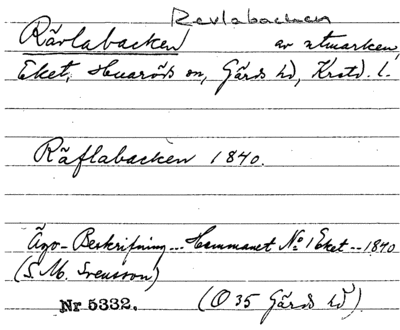 Revlabacken
Rävlabacken av utmarken,
Eket, Huaröds sn, Gärds hd, Krstd. l.
Räflabacken 1840.
Ägo-Beskrifning... Hemmanet No 1 Eket -- 1840
(S. M. Svensson)
Nr 5332. (O 35 Gärds hd)